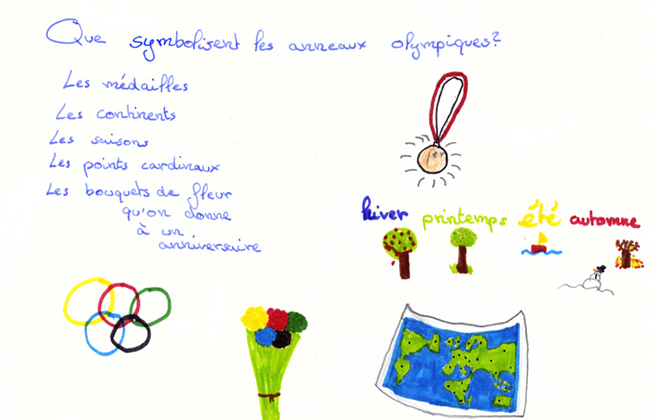 Que symbolisent les anneaux olympiques?
Les médailles
Les continents
Les saisons
Les points cardinaux
Les bouquets de fleur
qu'on donne
à un
anniversaire
1er
hiver printemps été automne